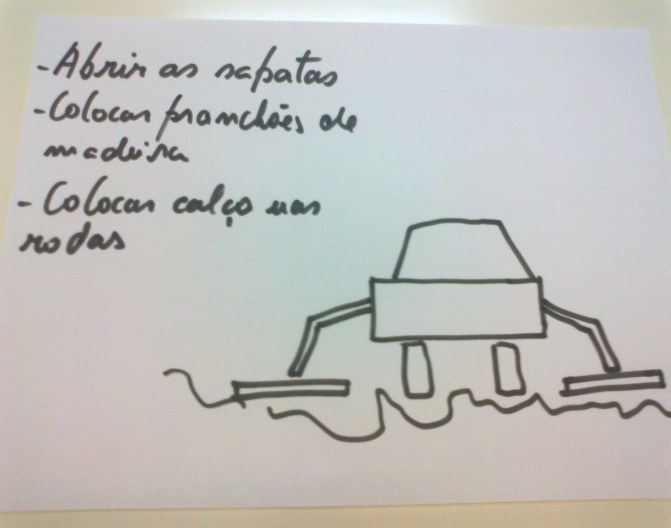 - Abrir as sapatas
- Colocar pranchões de
madeira
- Colocar calço nas
rodas